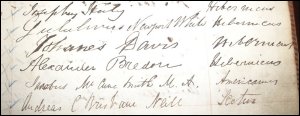 Josephus Hardy Hibernicus
Gulielmus Newport White Hibernicus
Johannes Davis Hibernicus
Alexander Bredon Hibernicus
Jacobus McCune Smith M. A. Americanus
Andreas C Brisbane Neill Scotus